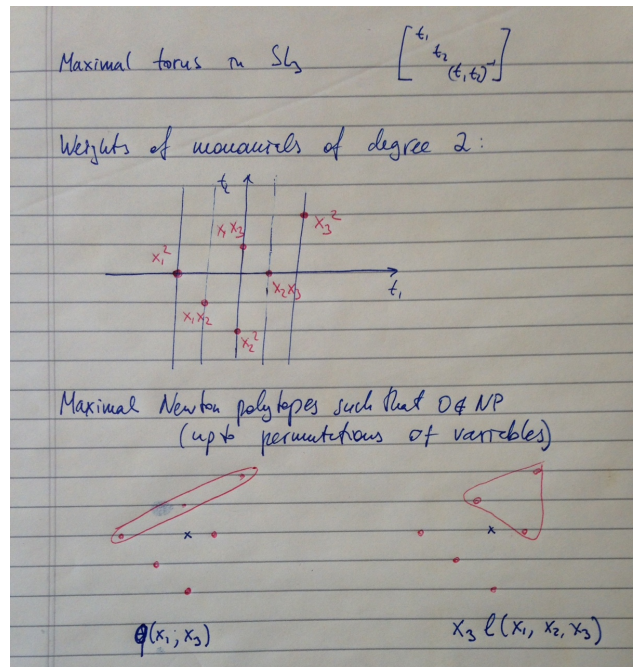 Maximal torus in SL₃ [t₁ t₂ (t₁t₂)⁻¹]
Weights of monomials of degree 2:
t₂
x₃²
x₁x₃
x₁²
x₂x₃
t₁
x₁x₂
x₂²
Maximal Newton polytopes such that 0∉NP
(up to permutations of variables)
q(x₁, x₃) x₃ℓ(x₁, x₂, x₃)